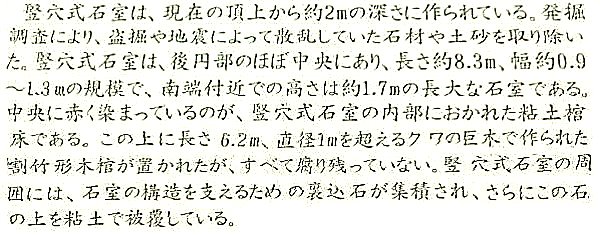 竪穴式石室は、現在の頂上から約2mの深さに作られている。発掘
調査により、盗掘や地震によって散乱していた石材や土砂を取り除い
た。竪穴式石室は、後円部のほぼ中央にあり、長さ約8.3m、幅約0.9
～1.3mの規模で、南端付近での高さは約1.7mの長大な石室である。
中央に赤く染まっているのが、竪穴式石室の内部におかれた粘土棺
床である。この上に長さ 6.2m、直径1mを超えるクワの巨木で作られた
割竹形木棺が置かれたが、すべて腐り残っていない。竪穴式石室の周
囲には、石室の構造を支えるための裏込石が集積され、さらにこの石
の上を粘土で被覆している。